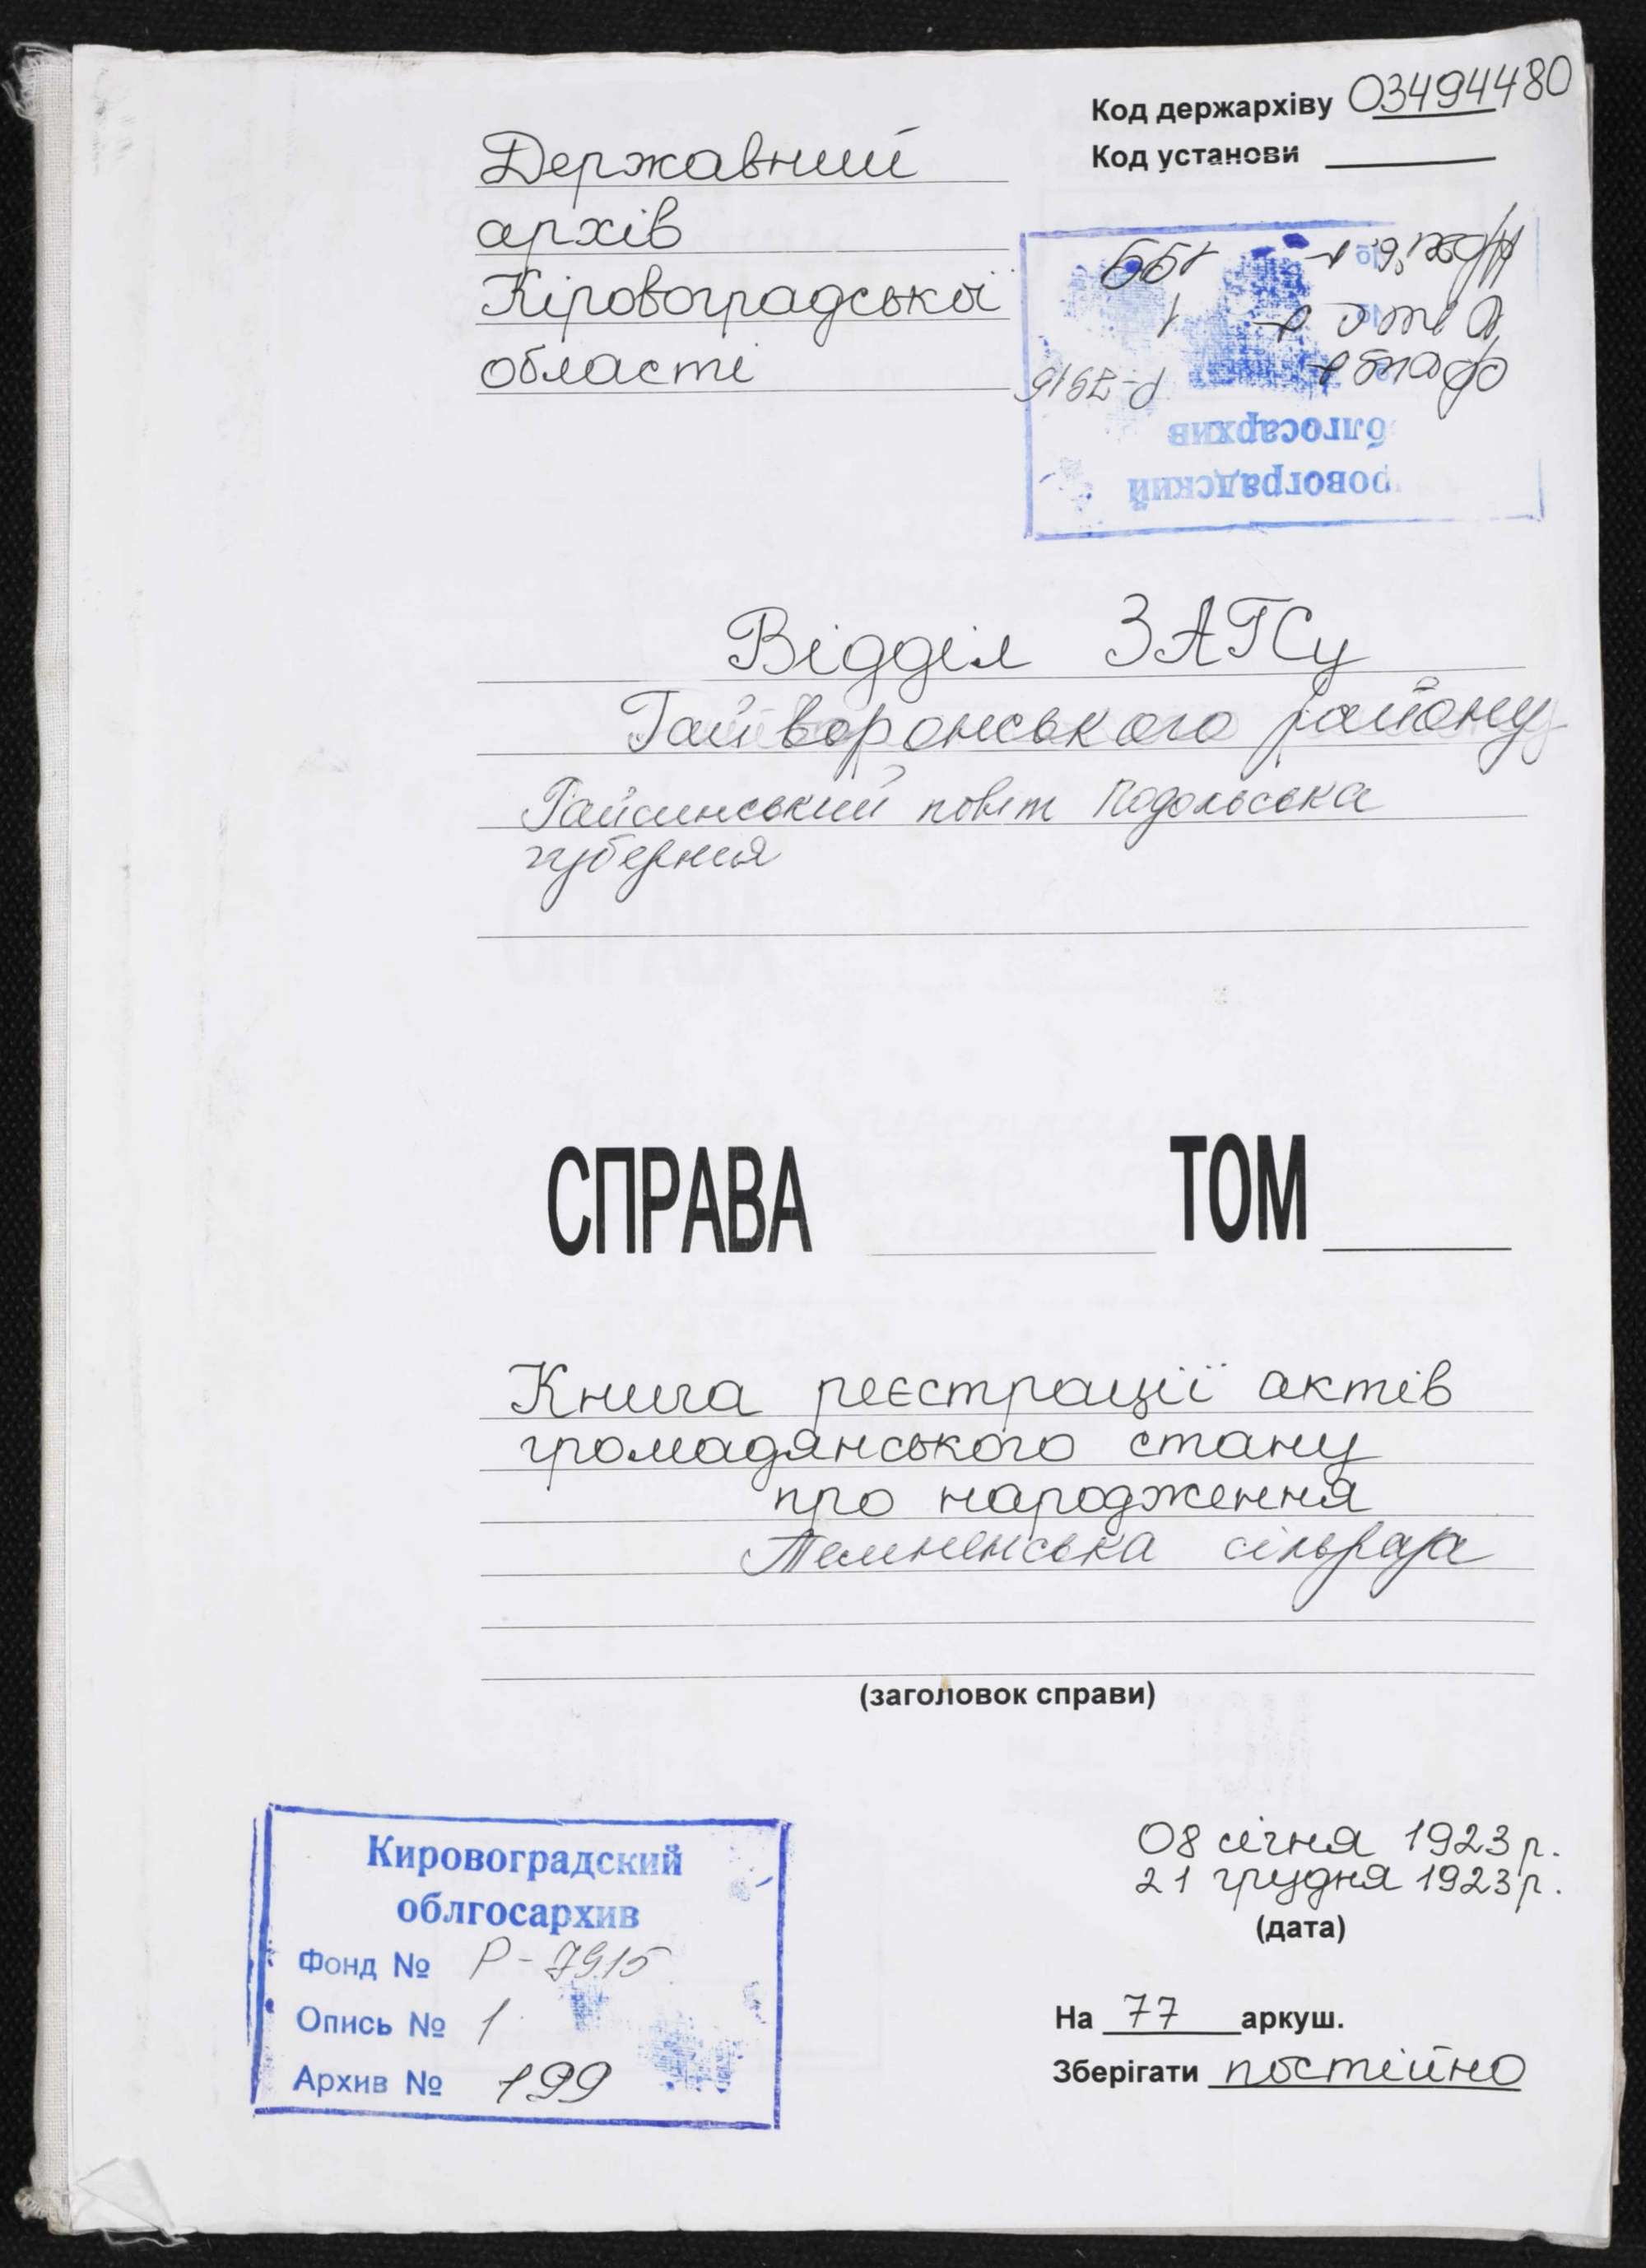 Код держархіву 03494480
Код установи
Державний
архів
Кіровоградської
області
Кировоградский
облгосархив
Фонд Р-7915
Опис 1
Архив 199
Відділ ЗАГСу
Гайворонського району
Гайсинський повіт Подольська
губернія
СПРАВА ТОМ
Книга реєстрації актів
громадянського стану
про народження
сільрада
(заголовок справи)
08 січня 1923 р.
21 грудня 1923 р.
(дата)
На 77 аркуш.
Зберігати постійно
Кировоградский
облгосархив
Фонд № Р-7915
Опись № 1
Архив № 199